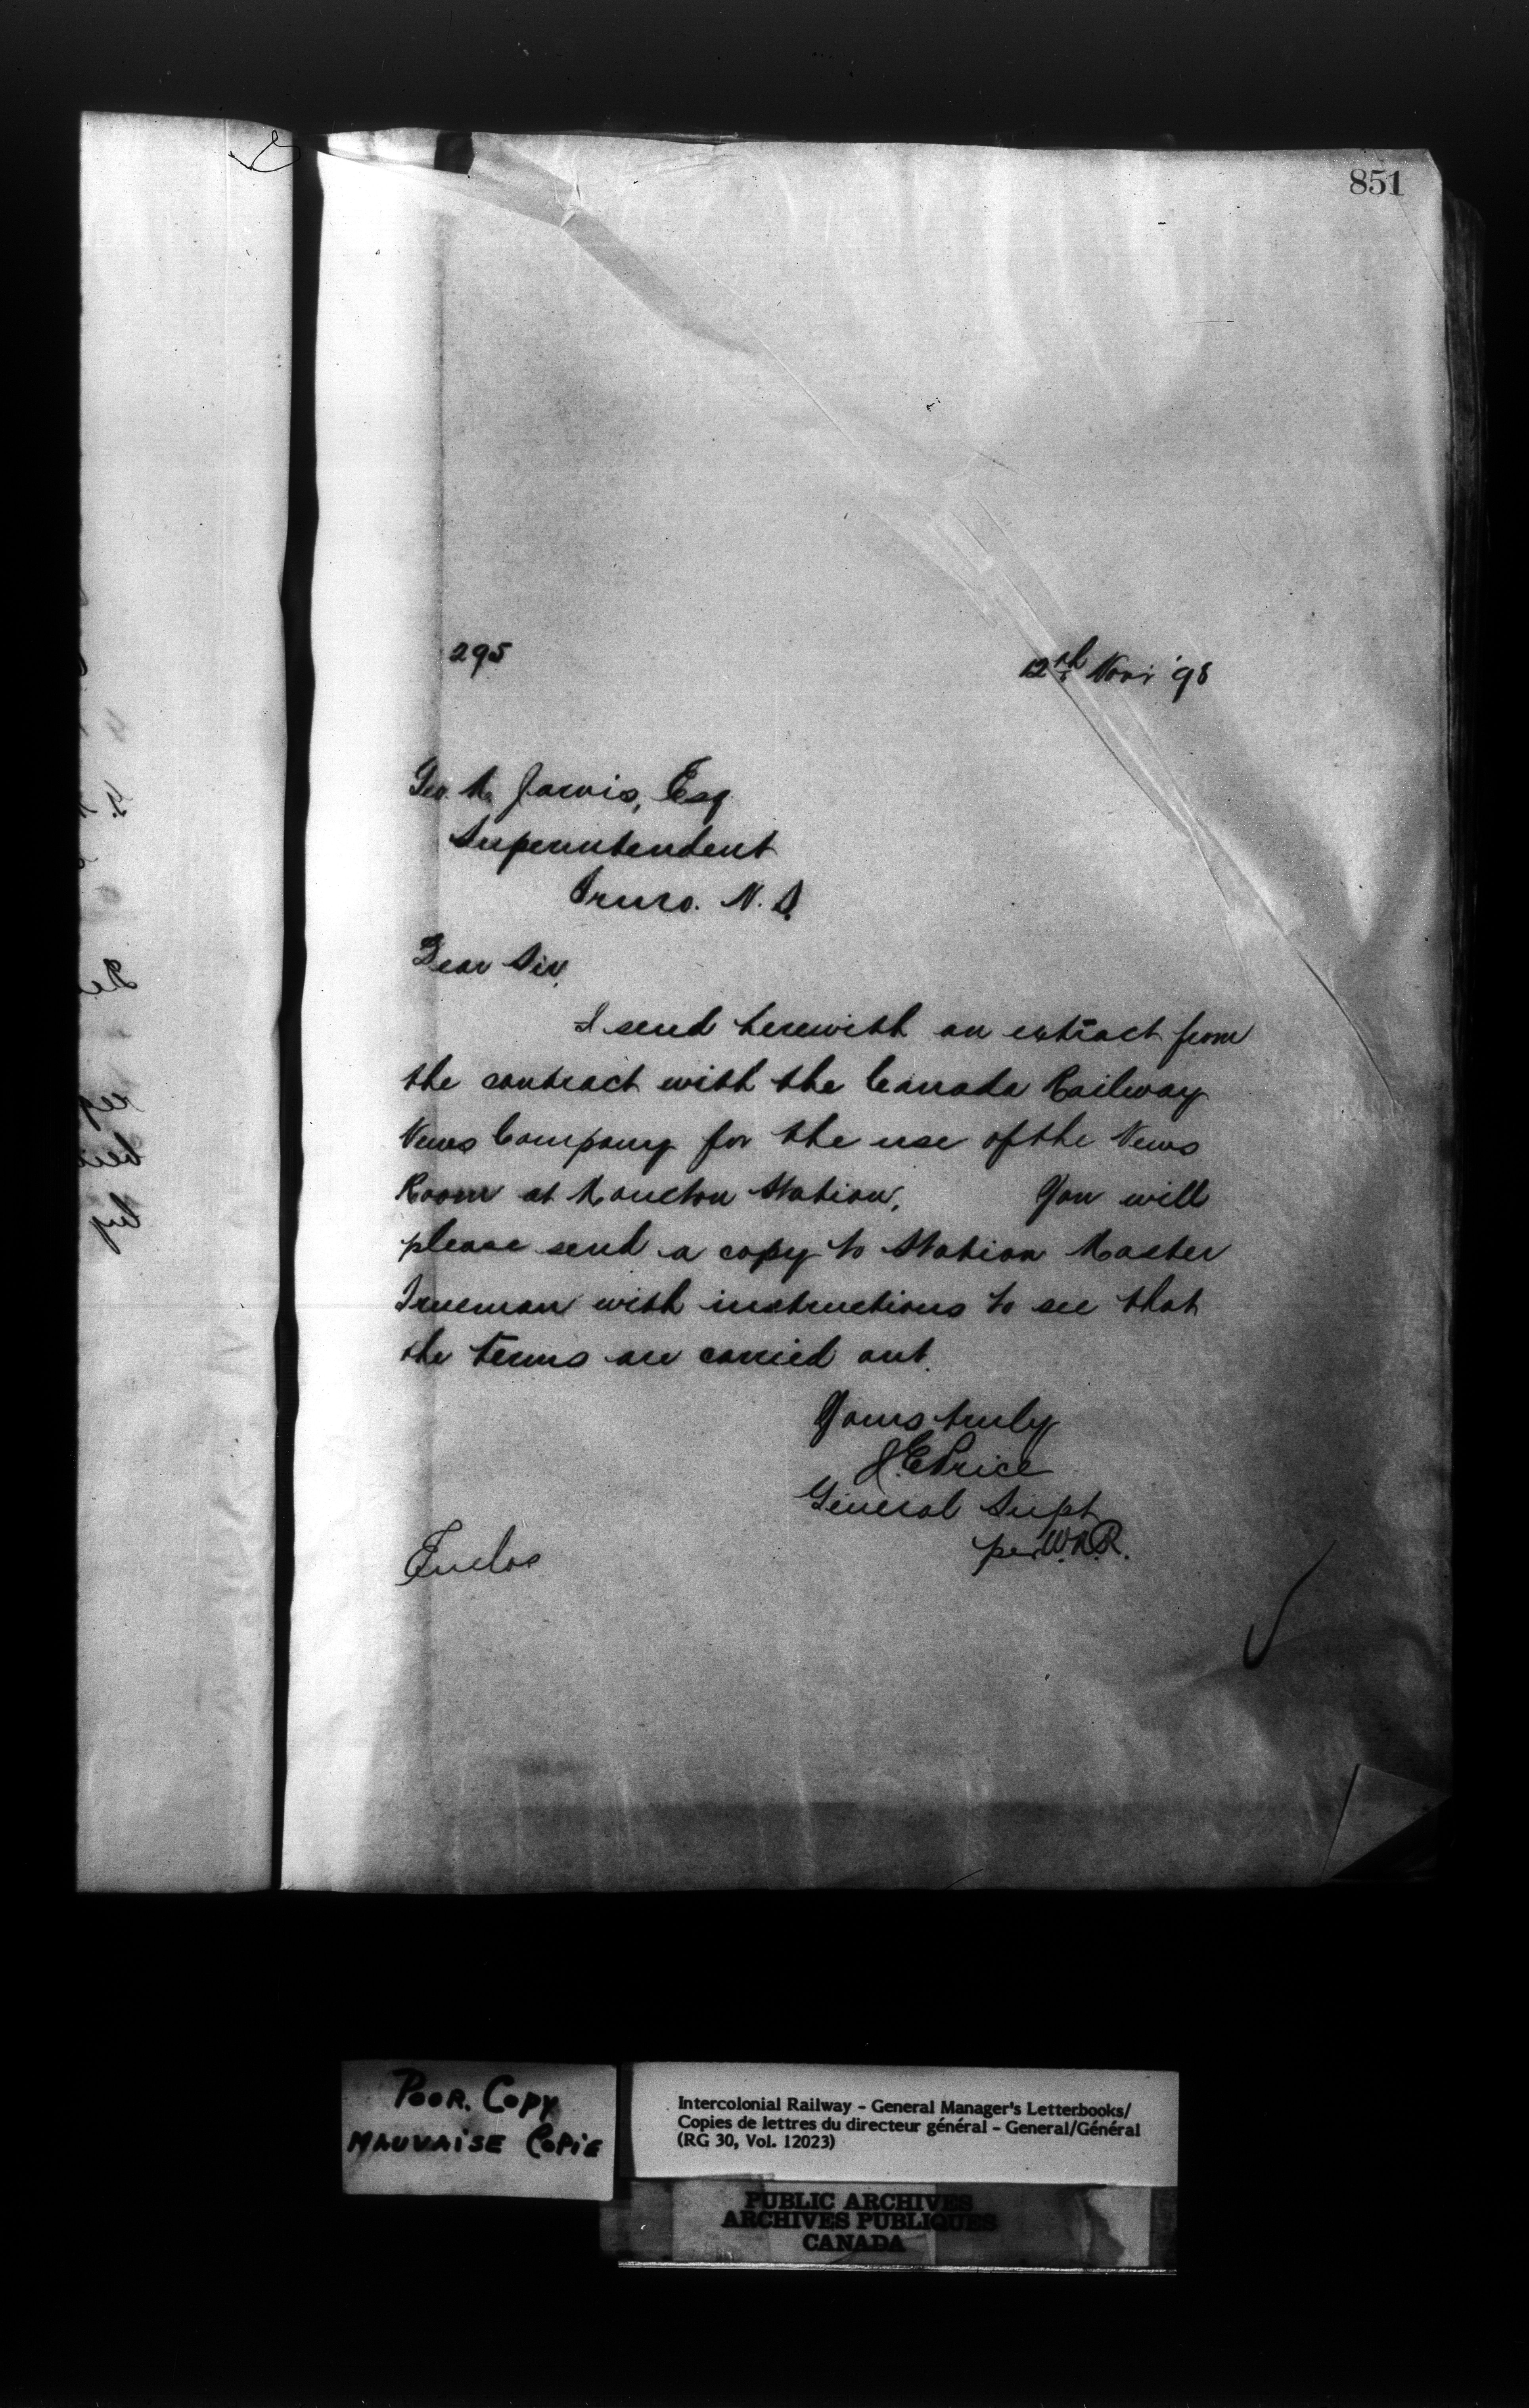 851
295
12th Nov '98
Geo. M. Jarvis, Esq
Superintendent
Truro. N. S.
Dear Sir,
I send herewith an extract from
the contract with the Canada Railway
News Company for the use of the News
Room at Moncton Station. You will
please send a copy to Station Master
Trueman with instructions to see that
the terms are carried out.
Yours truly
J.E. Price
General Supt
per W.A.R.
Enclos
POOR. COPY
MAUVAISE COPIE
Intercolonial Railway - General Manager's Letterbooks/
Copies de lettres du directeur général - General/Général
(RG 30, Vol. 12023)
PUBLIC ARCHIVES
ARCHIVES PUBLIQUES
CANADA